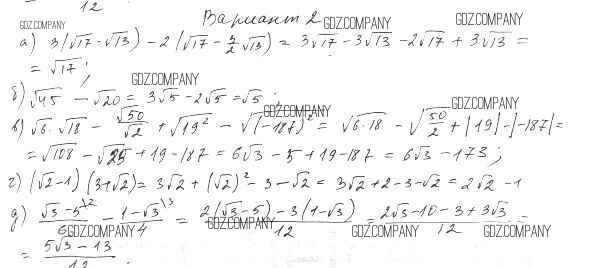 12
Вариант 2
GDZ.COMPANY GDZ.COMPANY GDZ.COMPANY
а) 3(√17 - √13) - 2(√17 - 3/2 √13) = 3√17 - 3√13 - 2√17 + 3√13 =
= √17;
GDZ.COMPANY
б) √45 - √20 = 3√5 - 2√5 = √5;
GDZ.COMPANY GDZ.COMPANY
в) √6·√18 - √50/√2 + √19² - √(-187)² = √6·18 - √50/2 + |19| - |-187| =
= √108 - √25 + 19 - 187 = 6√3 - 5 + 19 - 187 = 6√3 - 173;
г) (√2-1)(3+√2) = 3√2 + (√2)² - 3 - √2 = 3√2 + 2 - 3 - √2 = 2√2 - 1
д) (√3-5)\2/6 - (1-√3)\3/4 = (2(√3-5) - 3(1-√3))/12 = (2√3-10-3+3√3)/12 =
GDZ.COMPANY GDZ.COMPANY GDZ.COMPANY GDZ.COMPANY
= (5√3-13)/12.